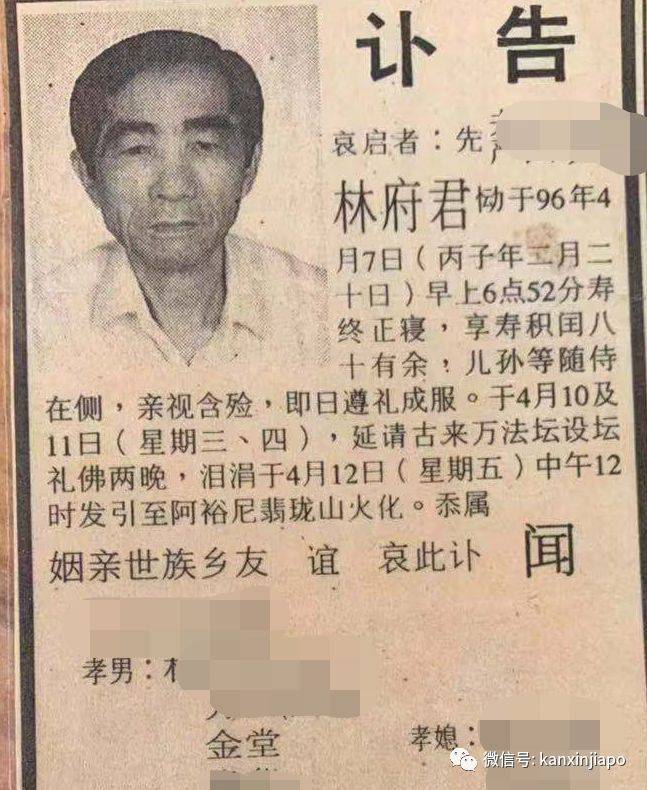 讣告
哀启者：先
林府君恸于96年4
月7日（丙子年二月二
十日）早上6点52分寿
终正寝，享寿积闰八
十有余，儿孙等随侍
在侧，亲视含殓，即日遵礼成服。于4月10及
11日（星期三、四），延请古来万法坛设坛
礼佛两晚，泪涓于4月12日（星期五）中午12
时发引至阿裕尼翡珑山火化。忝属
姻亲世族乡友 谊 哀此讣 闻
孝男：
金堂
孝媳：
微信号: kanxinjiapo